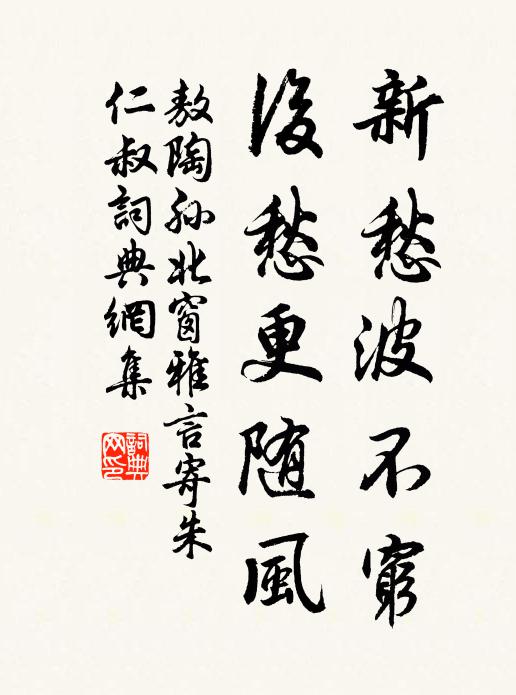 新愁波不窮
後愁更随風
敖陶孙北窗雅言寄朱
仁叔詞典網集
詞典网印